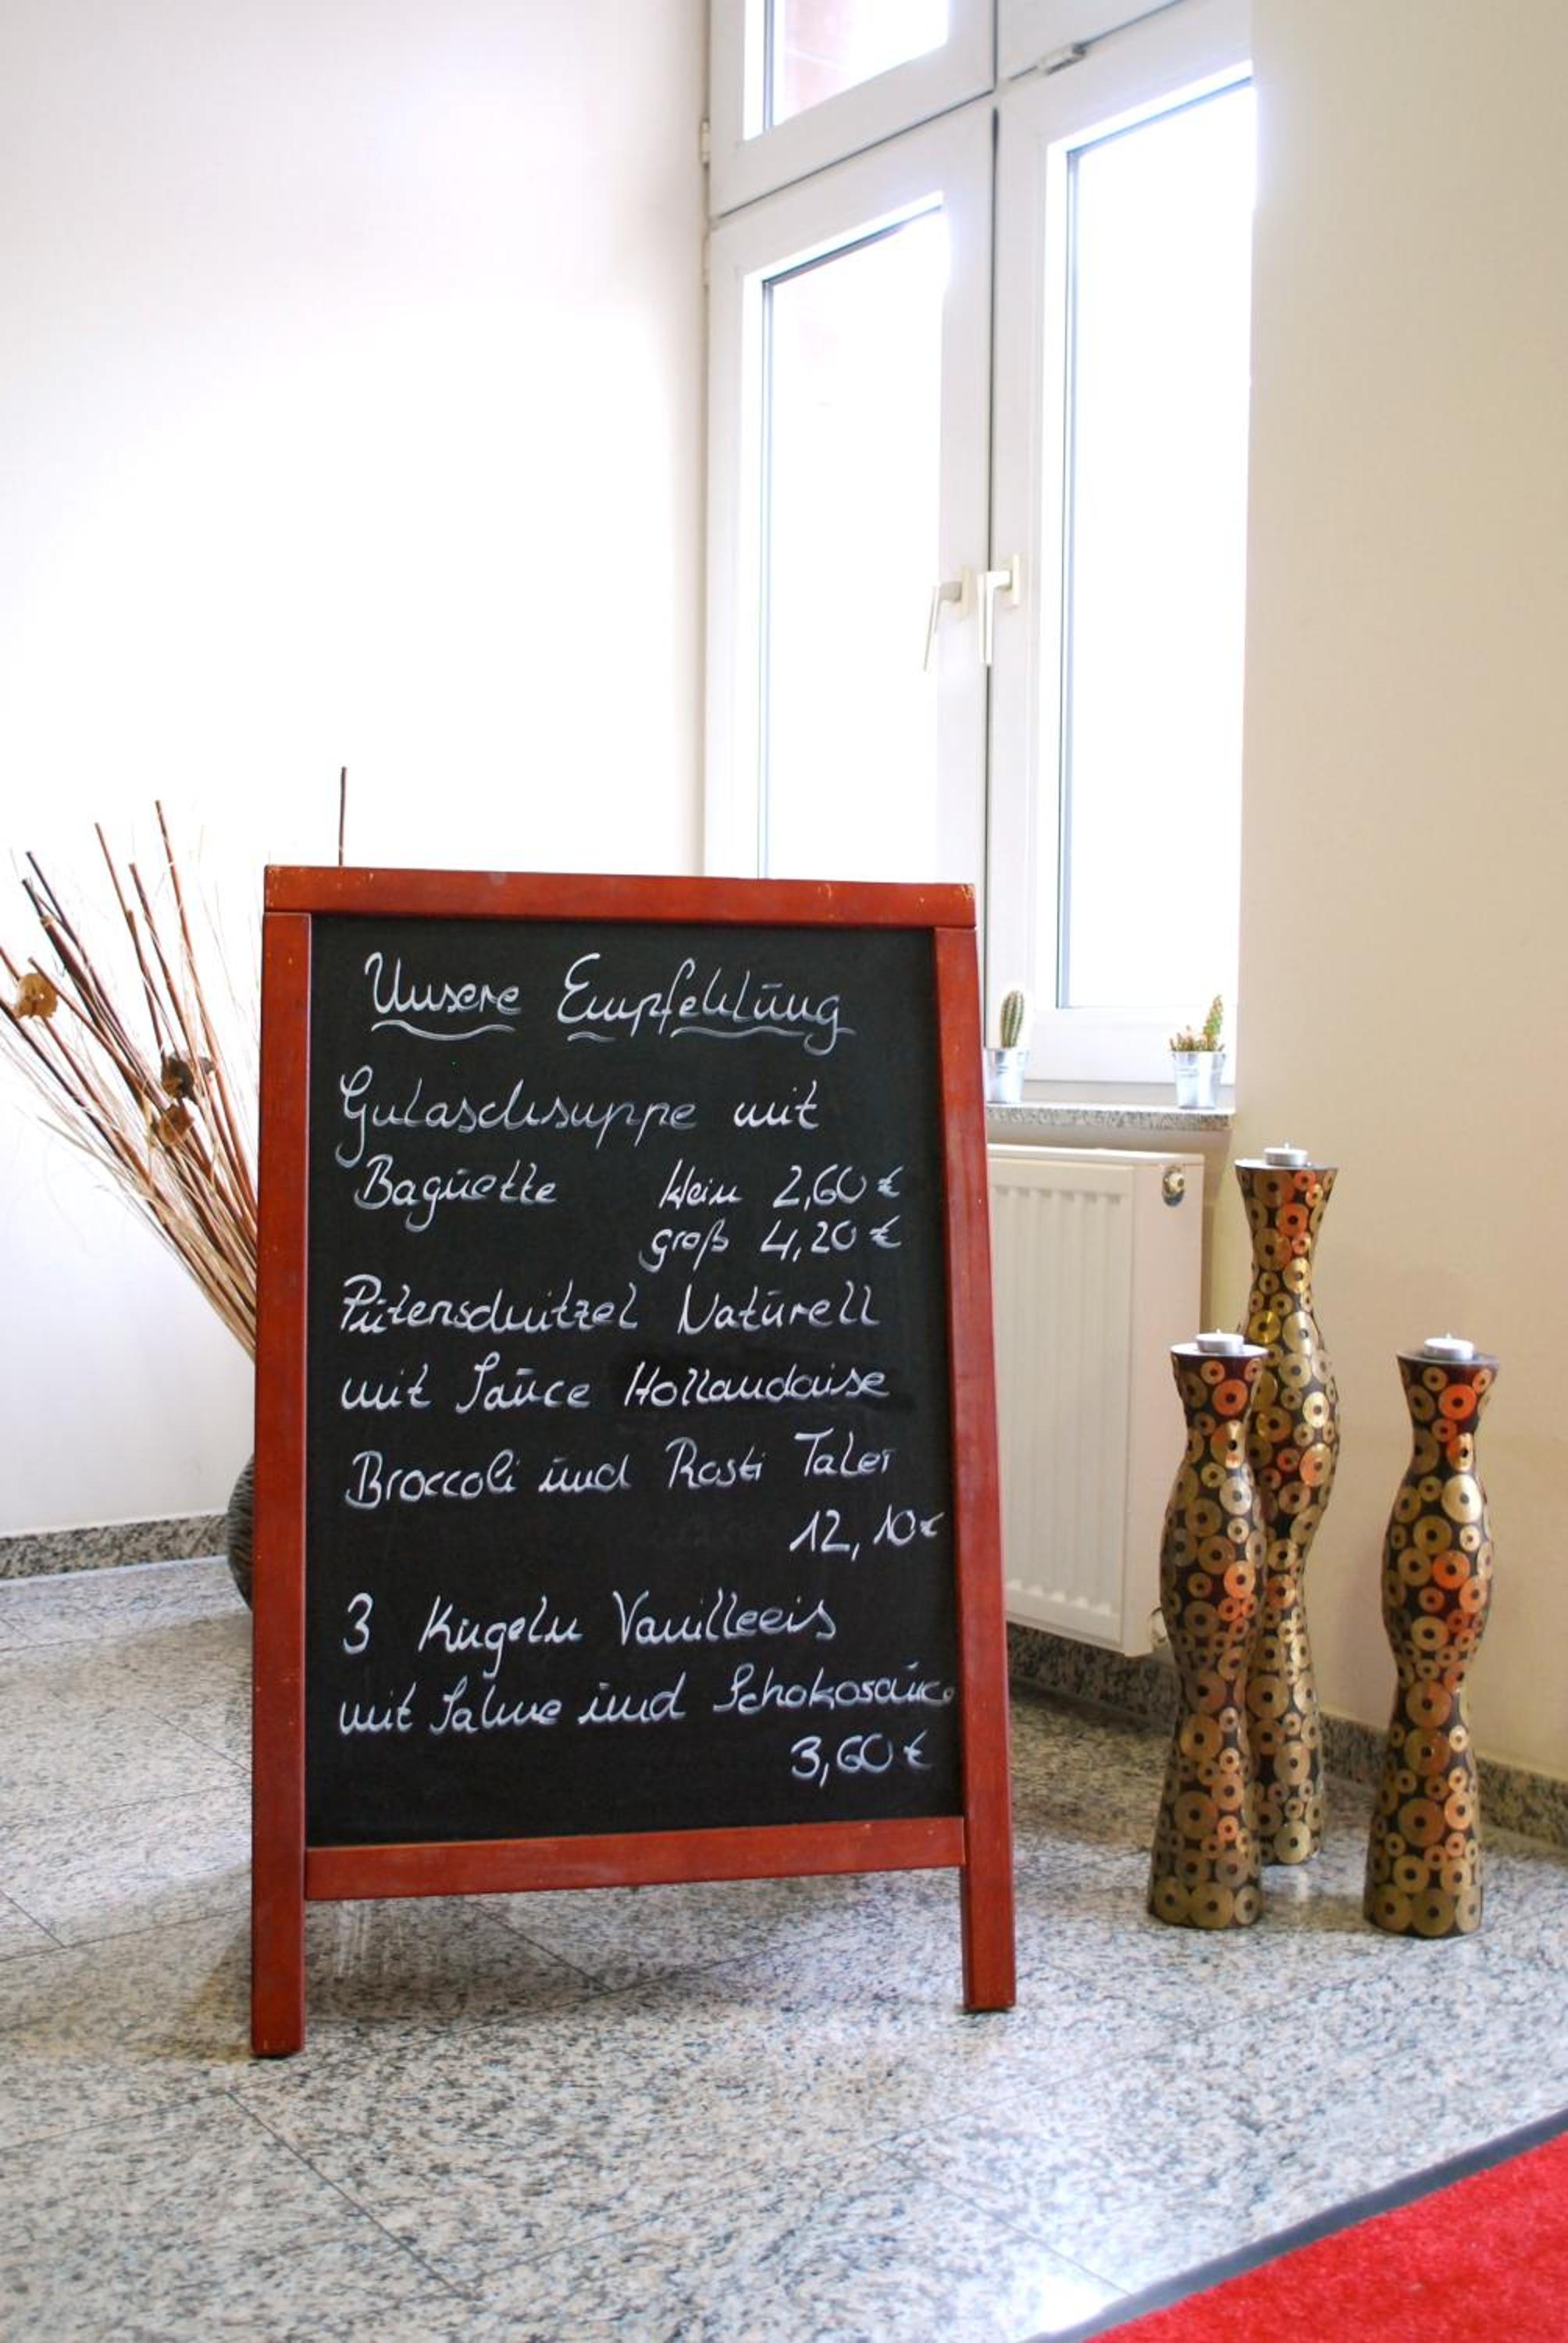 Unsere Empfehlung
Gulaschsuppe mit
Baguette klein 2,60 €
groß 4,20 €
Putenschnitzel Naturell
mit Sauce Hollandaise
Broccoli und Rosti Taler
12,10 €
3 Kugeln Vanilleeis
mit Sahne und Schokosauce
3,60 €